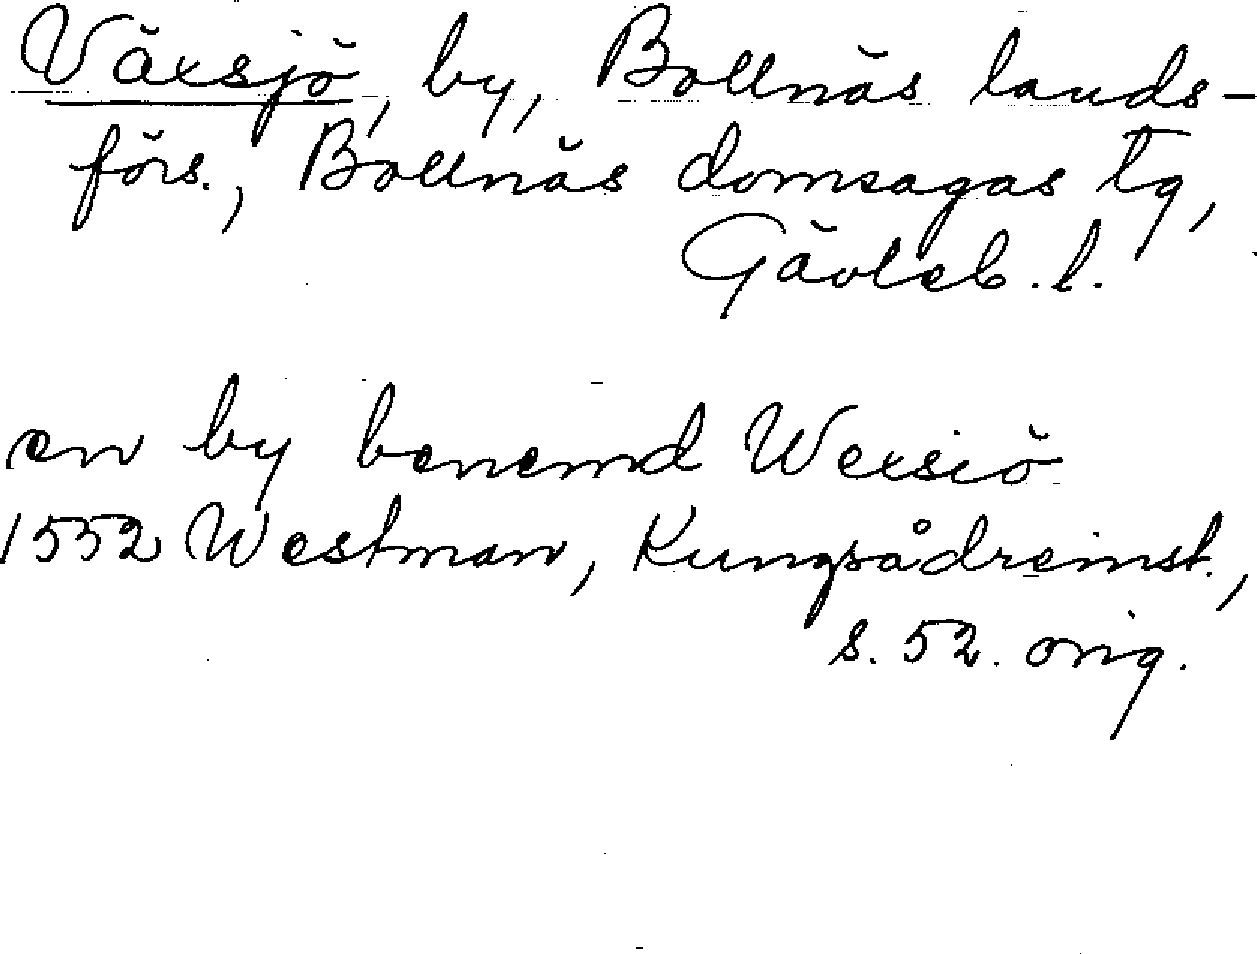 Växsjö, by, Bollnäs lands-
förs., Bollnäs domsagas tg,
Gävleb. l.
en by benemd Wexsiö
1552 Westman, Kungsådreinst.,
s. 52. orig.